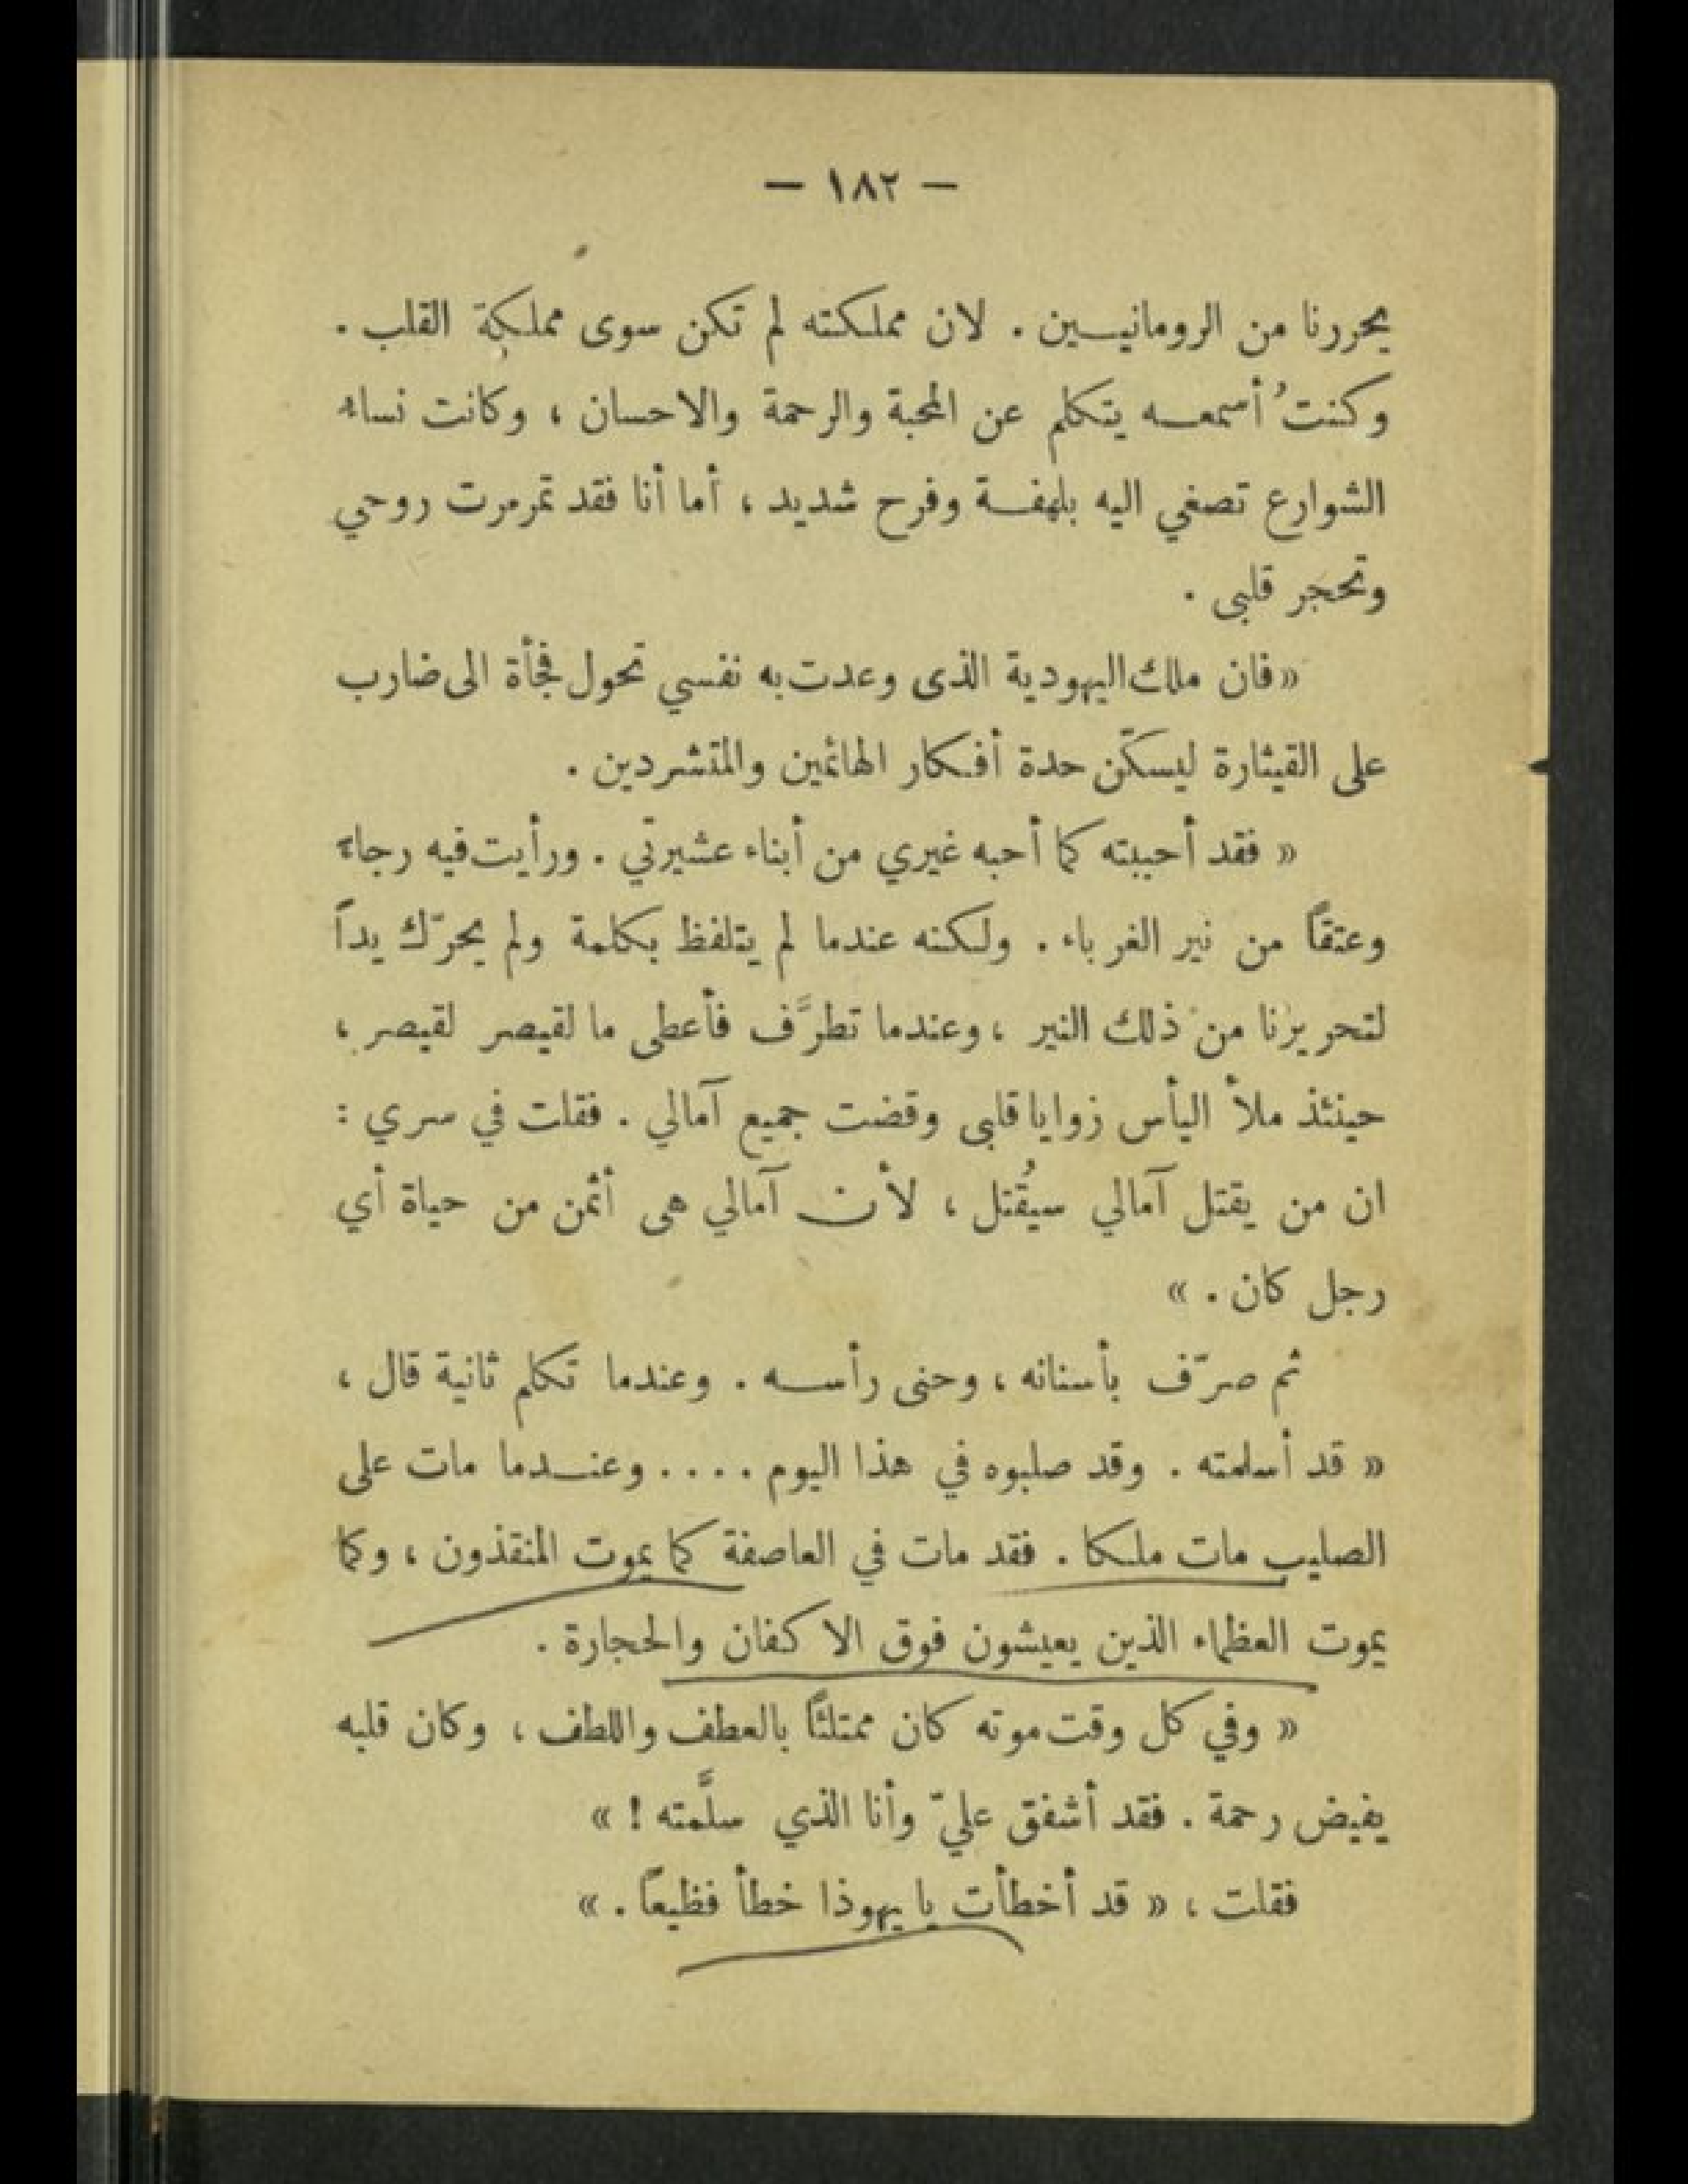 — ١٨٢ —
يحررنا من الرومانيين . لان مملكته لم تكن سوى مملكة القلب .
وكنتُ أسمعه يتكلم عن المحبة والرحمة والاحسان ، وكانت نساء
الشوارع تصغي اليه بلهفة وفرح شديد ، أما أنا فقد تمرمرت روحي
وتحجر قلبى .
« فان ملك اليهودية الذى وعدت به نفسي تحول فجأة الى ضارب
على القيثارة ليسكّن حدة أفكار الهائمين والمتشردين .
« فقد أحببته كما أحبه غيري من أبناء عشيرتي . ورأيت فيه رجاء
وعتقاً من نير الغرباء . ولكنه عندما لم يتلفظ بكلمة ولم يحرّك يداً
لتحريرنا من ذلك النير ، وعندما تطرَّف فأعطى ما لقيصر لقيصر ،
حينئذ ملأ اليأس زوايا قلبى وقضت جميع آمالي . فقلت في سري :
ان من يقتل آمالي سيُقتل ، لأن آمالي هى أثمن من حياة أي
رجل كان . »
ثم صرّف بأسنانه ، وحنى رأسه . وعندما تكلم ثانية قال ،
« قد أسلمته . وقد صلبوه في هذا اليوم .... وعندما مات على
الصليب مات ملكا . فقد مات في العاصفة كما يموت المنقذون ، وكما
يموت العظماء الذين يعيشون فوق الاكفان والحجارة .
« وفي كل وقت موته كان ممتلئاً بالعطف واللطف ، وكان قلبه
يفيض رحمة . فقد أشفق عليّ وأنا الذي سلَّمته ! »
فقلت ، « قد أخطأت يا يهوذا خطأ فظيعاً . »